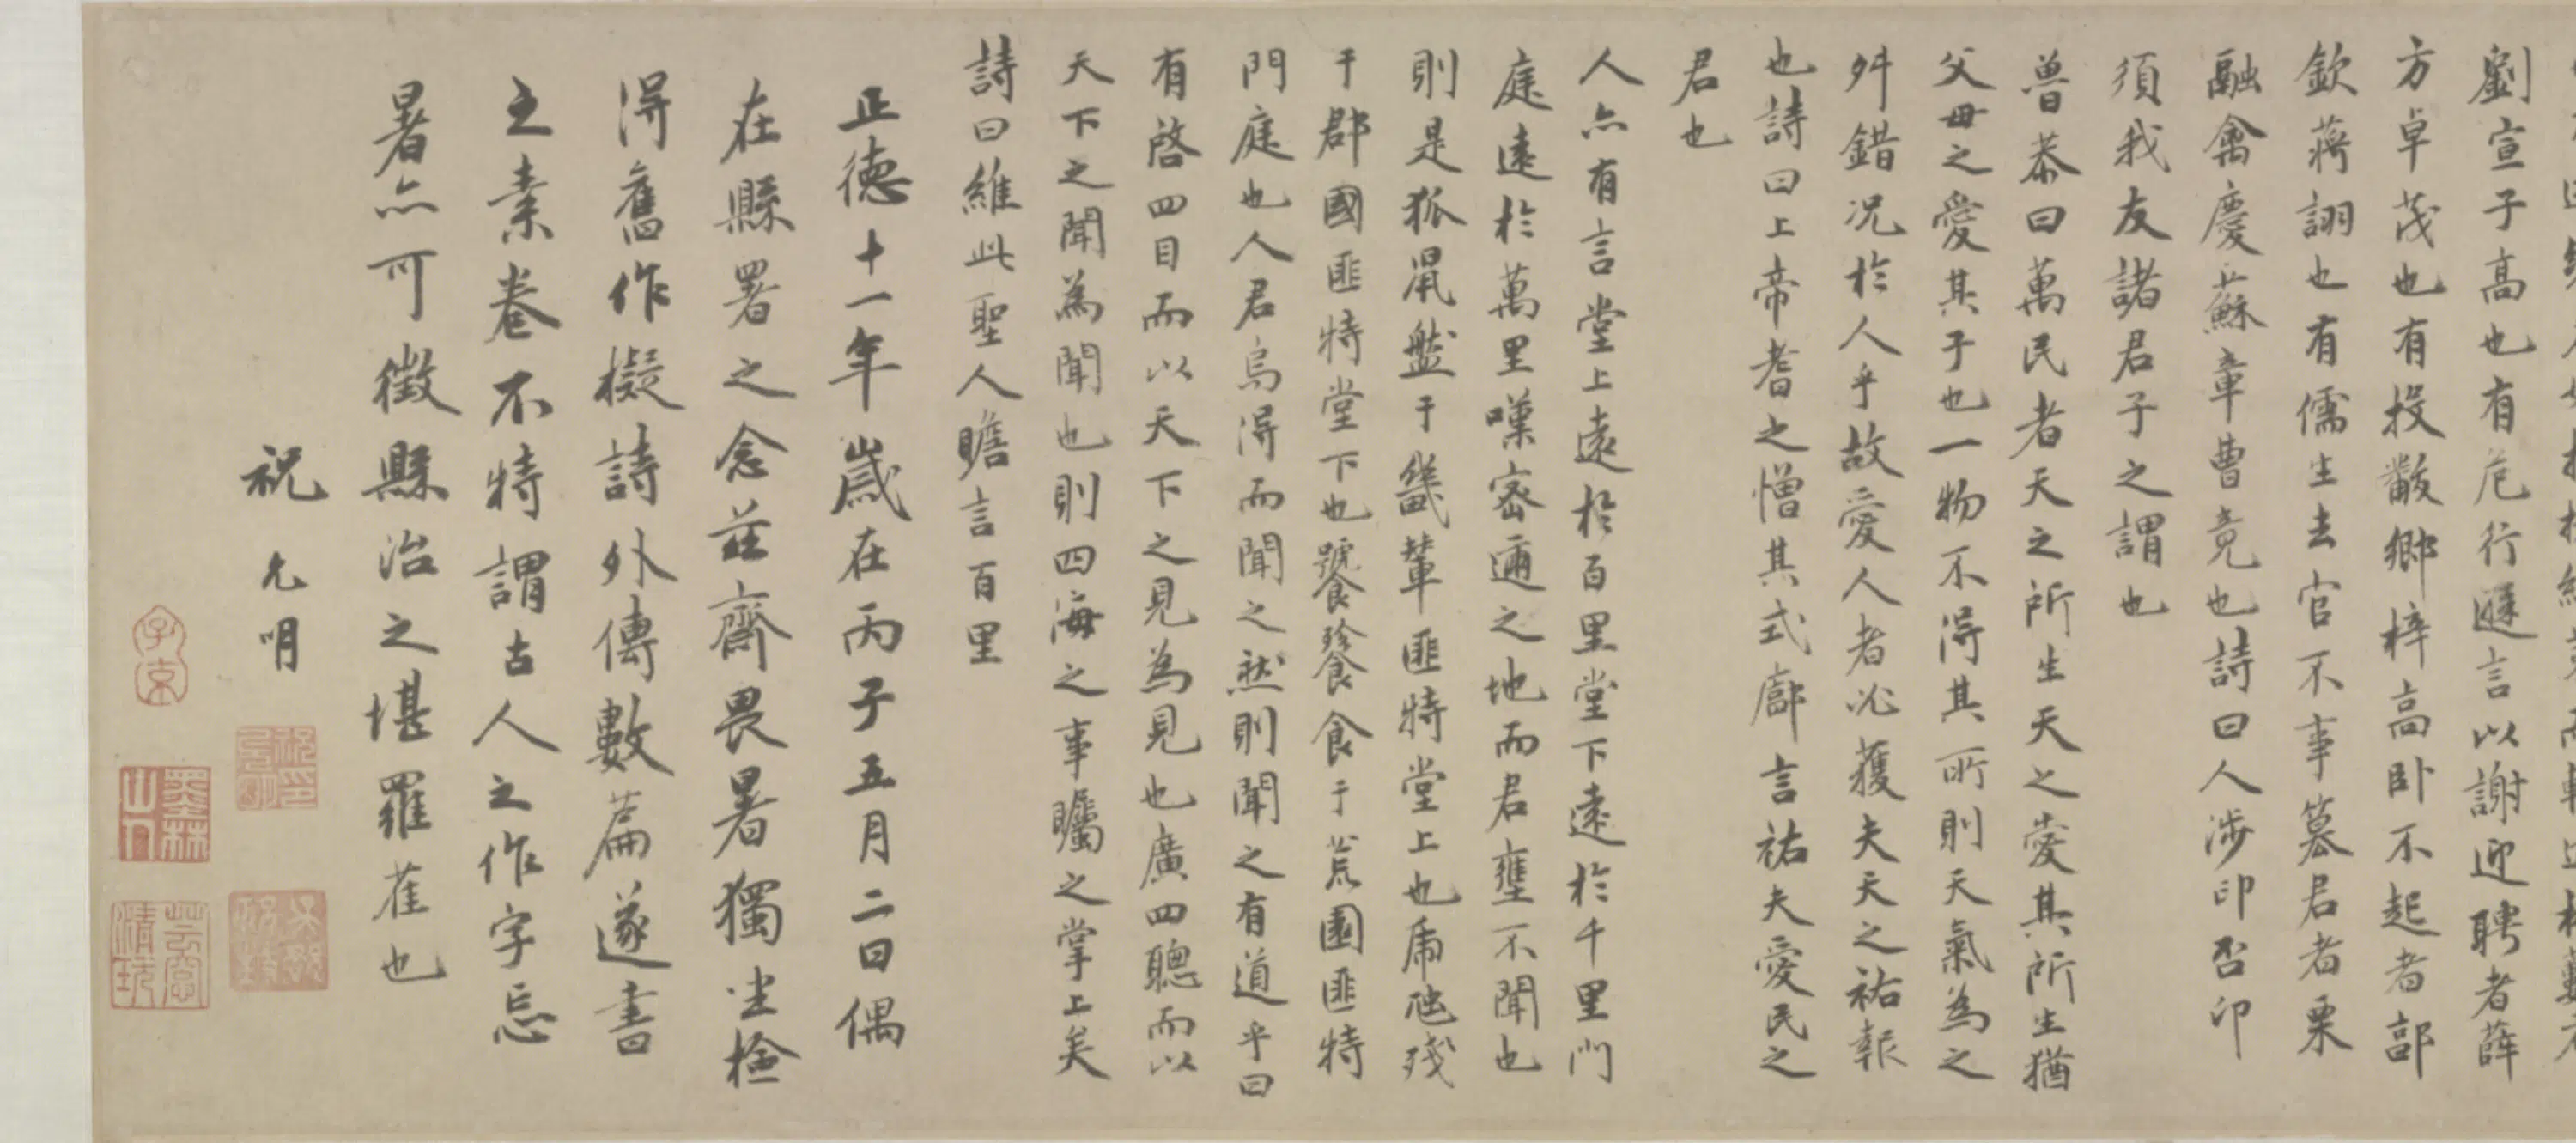 劉宣子高也有危行遜言以謝迎聘者薛
方卓茂也有投黻鄉梓高卧不起者郃
欽蔣詡也有儒生去官不事篡君者栗
融禽慶蘇章曹竟也詩曰人涉卬否卬
須我友諸君子之謂也
曽恭曰萬民者天之所生天之愛其所生猶
父母之愛其子也一物不得其所則天氣為之
舛錯況於人乎故愛人者必獲夫天之祐報
也詩曰上帝耆之憎其式廓言祐夫愛民之
君也
人亦有言堂上遠於百里堂下遠於千里門
庭遠於萬里嘆密邇之地而君壅不聞也
則是狐鼠盤于畿輦匪特堂上也虎虺殘
于郡國匪特堂下也饕餮食于荒圉匪特
門庭也人君烏得而聞之然則聞之有道乎曰
有啓四目而以天下之見為見也廣四聰而以
天下之聞為聞也則四海之事矚之掌上矣
詩曰維此聖人瞻言百里
正德十一年歲在丙子五月二日偶
在縣署之念茲齋畏暑獨坐檢
得舊作擬詩外傳數篇遂書
之素卷不特謂古人之作字忘
暑亦可徵縣治之堪羅雀也
祝允明
子京
墨林山人